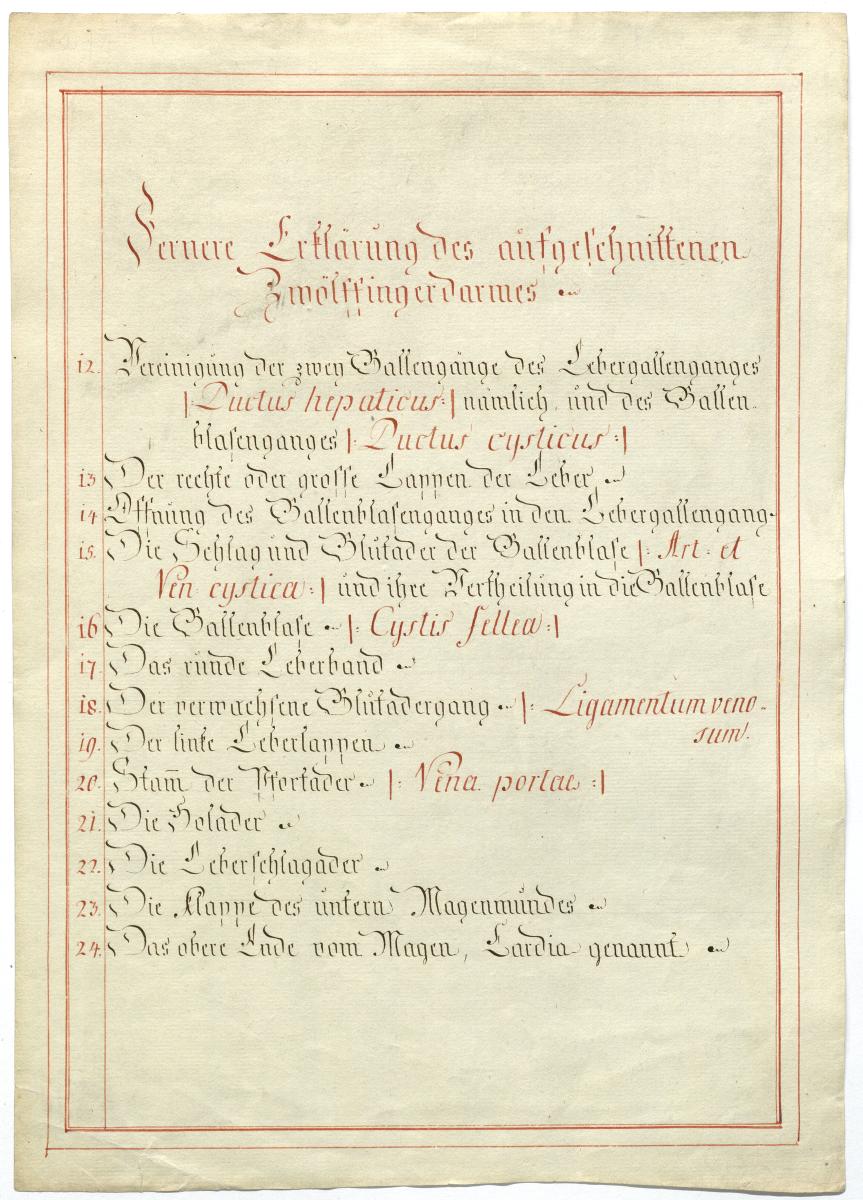 Fernere Erklärung des aufgeschnittenen
Zwölffingerdarmes
12. Vereinigung der zwey Gallengänge des Lebergallenganges
|: Ductus hepaticus :| nämlich und des Gallen-
blasenganges |: Ductus cysticus :|
13 Der rechte oder grosse Lappen der Leber
14 Öffnung des Gallenblasenganges in den Lebergallengang.
15. Die Schlag und Blutader der Gallenblase |: Art: et
Ven: cystica :| und ihre Vertheilung in die Gallenblase
16 Die Gallenblase |: Cystis fellea :|
17. Das runde Leberband
18. Der verwachsene Blutadergang |: Ligamentum veno-
sum.
19. Der linke Leberlappen
20. Stam̅ der Pfortader |: Vena portae :|
21. Die Holader
22. Die Leberschlagader
23. Die Klappe des untern Magenmundes
24. Das obere Ende vom Magen, Cardia genannt